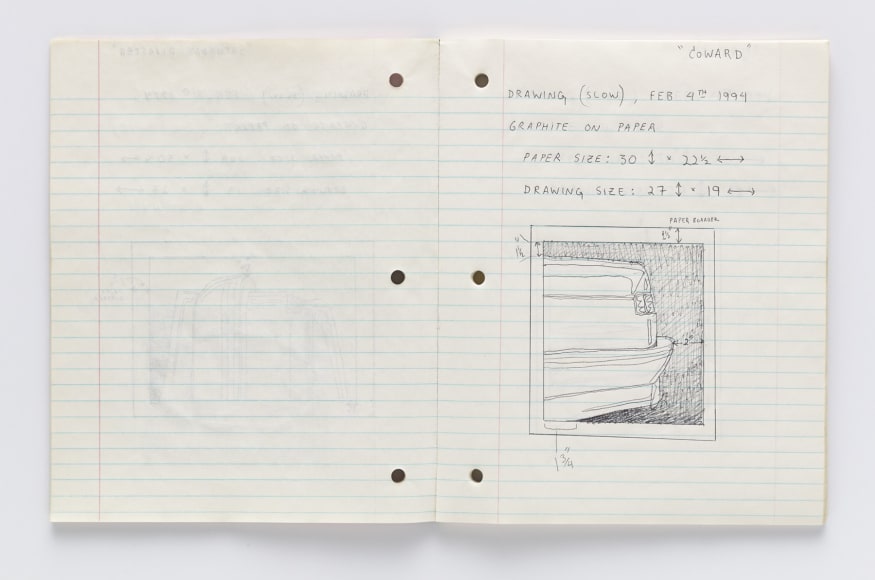 "COWARD"
DRAWING (SLOW), FEB 4TH 1994
GRAPHITE ON PAPER
PAPER SIZE: 30 ↕ × 22½ ↔
DRAWING SIZE: 27 ↕ × 19 ↔
PAPER BORDER
1½"
1½"
2"
1¾"